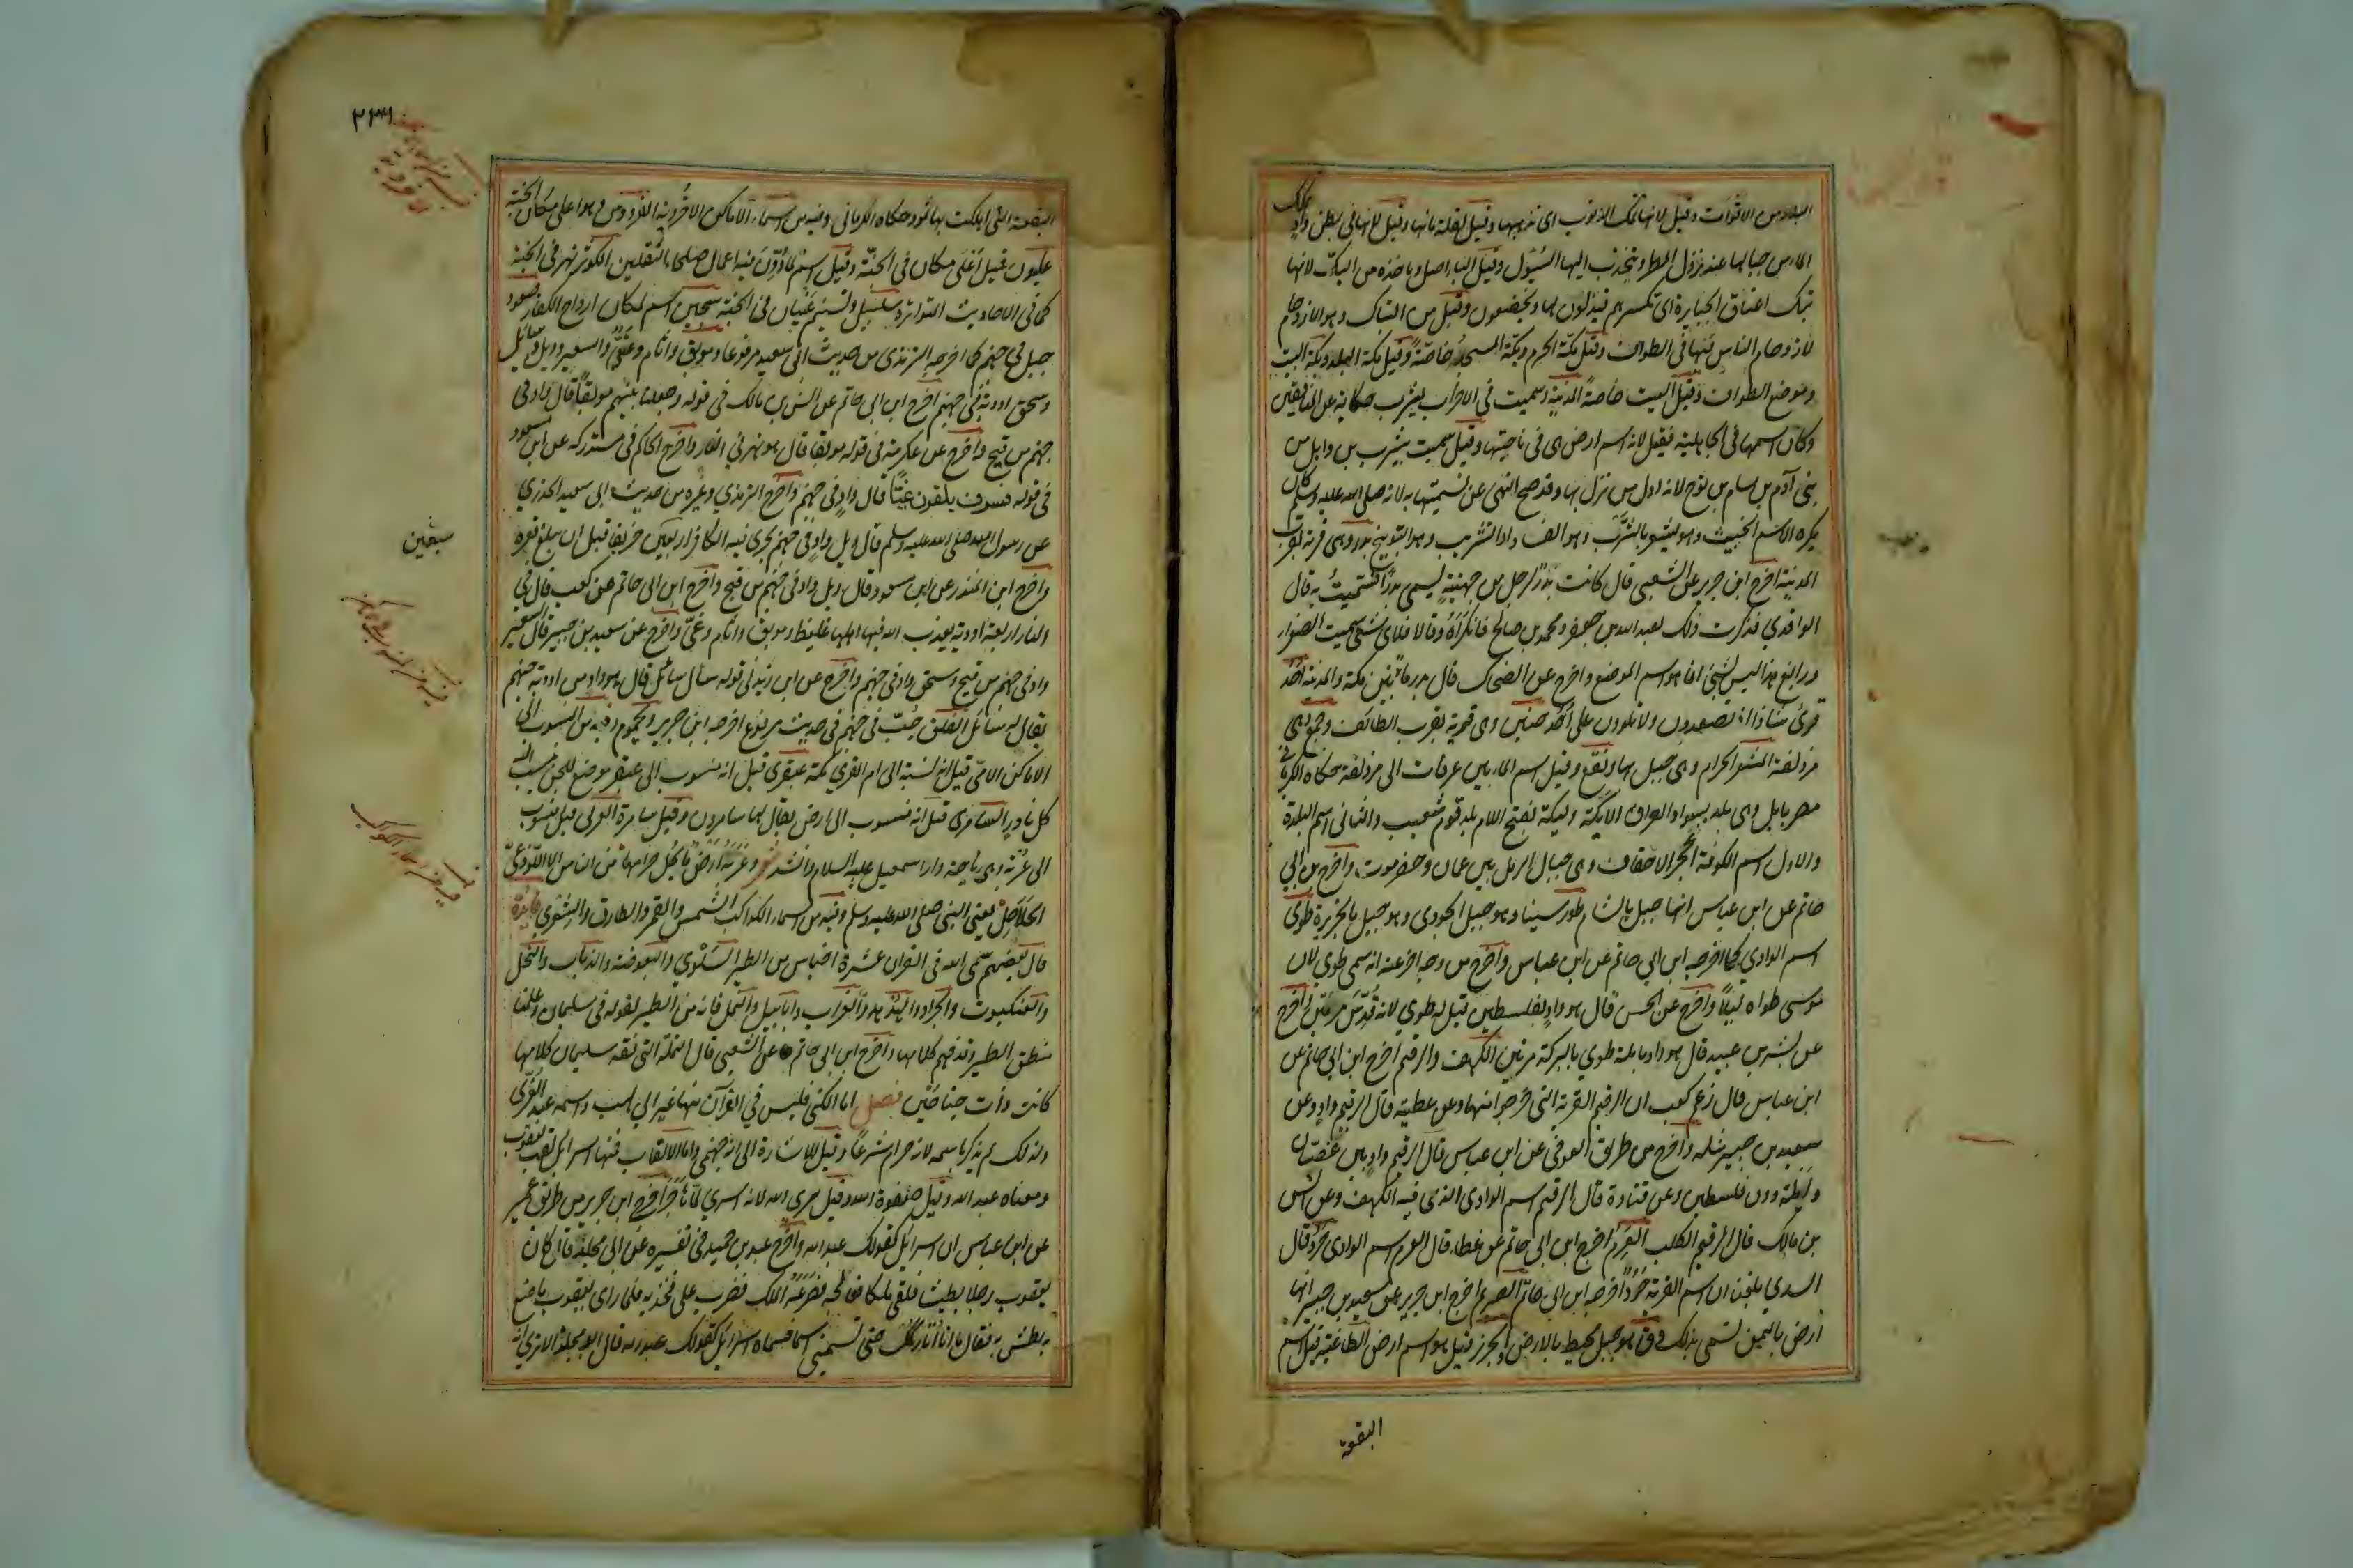 البلاد من الاقوات وقيل لانها تمك الذنوب اى تذهبها وقيل لقلة مائها وقيل لانها فى بطن واد تمك
الماء من جبالها عند نزول المطر وينجذب اليها السيول وقيل الباء اصل وماخذه من البك لانها
تبك اعناق الجبابرة اى تكسرهم فيذلون لها ويخضعون وقيل من التباك وهو الازدحام
لازدحام الناس فيها فى الطواف وقيل مكة الحرم وبكة المسجد خاصة وقيل مكة البلد وبكة البيت
وموضع الطواف وقيل البيت خاصة المدينة وسميت فى الاحزاب بيثرب حكاية عن المنافقين
وكان اسمها فى الجاهلية فقيل لانه اسم ارض هى فى ناحيتها وقيل سميت بيثرب بن وايل من
بنى آدم بن سام بن نوح لانه اول من نزل بها وقد صح النهى عن تسميتها به لانه صلى الله عليه وسلم كان
يكره الاسم الخبيث وهو يشعر بالثرب وهو الفساد او التثريب وهو التوبيخ بدر وهى قرية قرب
المدينة اخرج ابن جرير عن الشعبى قال كانت بدر لرجل من جهينة يسمى بدرا فسميت به قال
الواقدى فذكرت ذلك لعبد الله بن جعفر ومحمد بن صالح فانكراه وقالا فلاى شئ سميت الصفراء
ورابغ هذا ليس بشئ انما هو اسم الموضع واخرج عن الضحاك قال بدر ما بين مكة والمدينة احد
قرئ شاذا اذ تصعدون ولا تلوون على احد حنين وهى قرية بقرب الطائف وجمع وهى
مزدلفة المشعر الحرام وهى جبل بها ونقع وقيل اسم لما بين عرفات الى مزدلفة حكاه الكرمانى
مصر بابل وهى بلد بسواد العراق الايكة وليكة بفتح اللام بلد قوم شعيب والثانى اسم البلدة
والاول اسم الكورة الحجر الاحقاف وهى جبال الرمل بين عمان وحضرموت واخرج بن ابى
حاتم عن ابن عباس انها جبل بالشام طور سينا وهو جبل الجودى وهو جبل بالجزيرة طوى
اسم الوادى كما اخرجه ابن ابى حاتم عن ابن عباس واخرج من وجه اخر عنه انه سمى طوى لان
موسى طواه ليلا واخرج عن الحسن قال هو واد بفلسطين قيل له طوى لانه قدس مرتين واخرج
عن بشر بن عبيد قال هو واد بايلة طوى بالبركة مرتين الكهف والرقيم اخرج ابن ابى حاتم عن
ابن عباس قال زعم كعب ان الرقيم القرية التى خرجوا منها وعن عطية قال الرقيم واد وعن
سعيد بن جبير مثله واخرج من طريق العوفى عن ابن عباس قال الرقيم واد بين عصبان
وايلة دون فلسطين وعن قتادة قال الرقيم اسم الوادى الذى فيه الكهف وعن انس
بن مالك قال الرقيم الكلب العرم اخرج ابن ابى حاتم عن عطاء قال العرم اسم الوادى حرد قال
السدى بلغنا ان اسم القرية حرد اخرجه ابن ابى حاتم الصريم اخرج ابن جرير عن سعيد بن جبير انها
ارض باليمن تسمى بذلك ق هو جبل محيط بالارض الجرز قيل هو اسم ارض الطاغية قيل اسم
البقعة
٢٣٣
البقعة التى اهلكت بها ثمود حكاه الكرمانى وفيه من اسماء الاماكن الاخروية الفردوس وهو اعلى مكان الجنة
عليون قيل اعلى مكان فى الجنة وقيل اسم لما دون فيه اعمال صلحاء الثقلين الكوثر نهر فى الجنة
كما فى الاحاديث المتواترة سلسبيل وتسنيم عينان فى الجنة سجين اسم لمكان ارواح الكفار صعود
جبل فى جهنم كما اخرجه الترمذى من حديث ابى سعيد مرفوعا وموبق واثام وغى والسعير وويل وسائل
وسحق اودية فى جهنم اخرج ابن ابى حاتم عن انس بن مالك فى قوله وجعلنا بينهم موبقا قال واد فى
جهنم من قيح واخرج عن عكرمة فى قوله موبقا قال هو نهر فى النار واخرج الحاكم فى مستدركه عن ابن مسعود
فى قوله فسوف يلقون غيا قال واد فى جهنم واخرج الترمذى وغيره من حديث ابى سعيد الخدرى
عن رسول الله صلى الله عليه وسلم قال ويل واد فى جهنم يهوى فيه الكافر اربعين خريفا قبل ان يبلغ قعره
سبعين
واخرج ابن المنذر عن ابن مسعود قال ويل واد فى جهنم من قيح واخرج ابن ابى حاتم عن كعب قال فى
النار اربعة اودية يعذب الله فيها اهلها غليظ وموبق واثام وغى واخرج عن سعيد بن جبير قال السعير
واد فى جهنم من قيح وسحق واد فى جهنم واخرج عن ابى زيد فى قوله سال سائل قال هو واد من اودية جهنم
يقال له سائل الفلق جب فى جهنم فى حديث مرفوع اخرجه ابن جرير يحموم وفيه من المنسوب الى
الاماكن الامى قيل انه نسبة الى ام القرى مكة عبقرى قيل انه منسوب الى عبقر موضع للجن ينسب اليه
كل نادر السامرى قيل انه منسوب الى ارض يقال لها سامرون وقيل سامرة العربى قيل منسوب
الى عربة وهى باحة دار اسمعيل عليه السلام وانشد شعر وعربة ارض ما يحل حرامها من الناس الا اللوذعى
الحلاحل يعنى النبى صلى الله عليه وسلم وفيه من اسماء الكواكب الشمس والقمر والطارق والشعرى فائدة
قال بعضهم سمى الله فى القران عشرة اجناس من الطير السلوى والبعوضة والذباب والنحل
والعنكبوت والجراد والهدهد والغراب وابابيل والنمل فانه من الطير لقوله فى سليمان وعلمنا
منطق الطير وقد فهم كلامها واخرج ابن ابى حاتم عن الشعبى قال النملة التى فقه سليمان كلامها
كانت ذات جناحين فصل اما الكنى فليس فى القرآن منها غير ابى لهب واسمه عبد العزى
ولذلك لم يذكر باسمه لانه حرام شرعا وقيل للاشارة الى انه جهنمى واما الالقاب فمنها اسرائل لقب يعقوب
ومعناه عبد الله وقيل صفوة الله وقيل سرى الله لانه اسرى لما هاجر اخرج ابن جرير من طريق عمير
عن ابن عباس ان اسرائل كقولك عبد الله واخرج عبد بن حميد فى تفسيره عن ابى مجلز قال كان
يعقوب رجلا بطيشا فلقى ملكا فعالجه فصرعه الملك فضرب على فخذيه فلما راى يعقوب ما صنع
به بطش به فقال ما انا بتاركك حتى تسمينى اسما فسماه اسرائل كقولك عبد الله قال ابو مجلز الا ترى انه